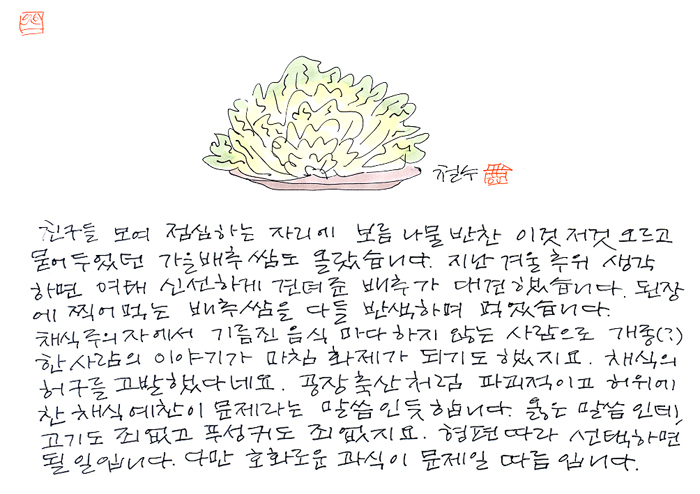 철수
친구들 모여 점심하는 자리에 보름 나물 반찬 이것 저것 오르고
묻어 두었던 가을배추 쌈도 올랐습니다. 지난 겨울 추위 생각
하면 여태 신선하게 견뎌준 배추가 대견했습니다. 된장
에 찍어 먹는 배추쌈을 다들 반색하며 먹었습니다.
채식주의자에서 기름진 음식 마다 하지 않는 사람으로 개종(?)
한 사람의 이야기가 마침 화제가 되기도 했지요. 채식의
허구를 고발했다네요. 공장축산처럼 파괴적이고 허위에
찬 채식예찬이 문제라는 말씀인듯 합니다. 옳은 말씀인데,
고기도 죄없고 푸성귀도 죄 없지요. 형편따라 선택하면
될 일입니다. 다만 호화로운 과식이 문제일 따름입니다.